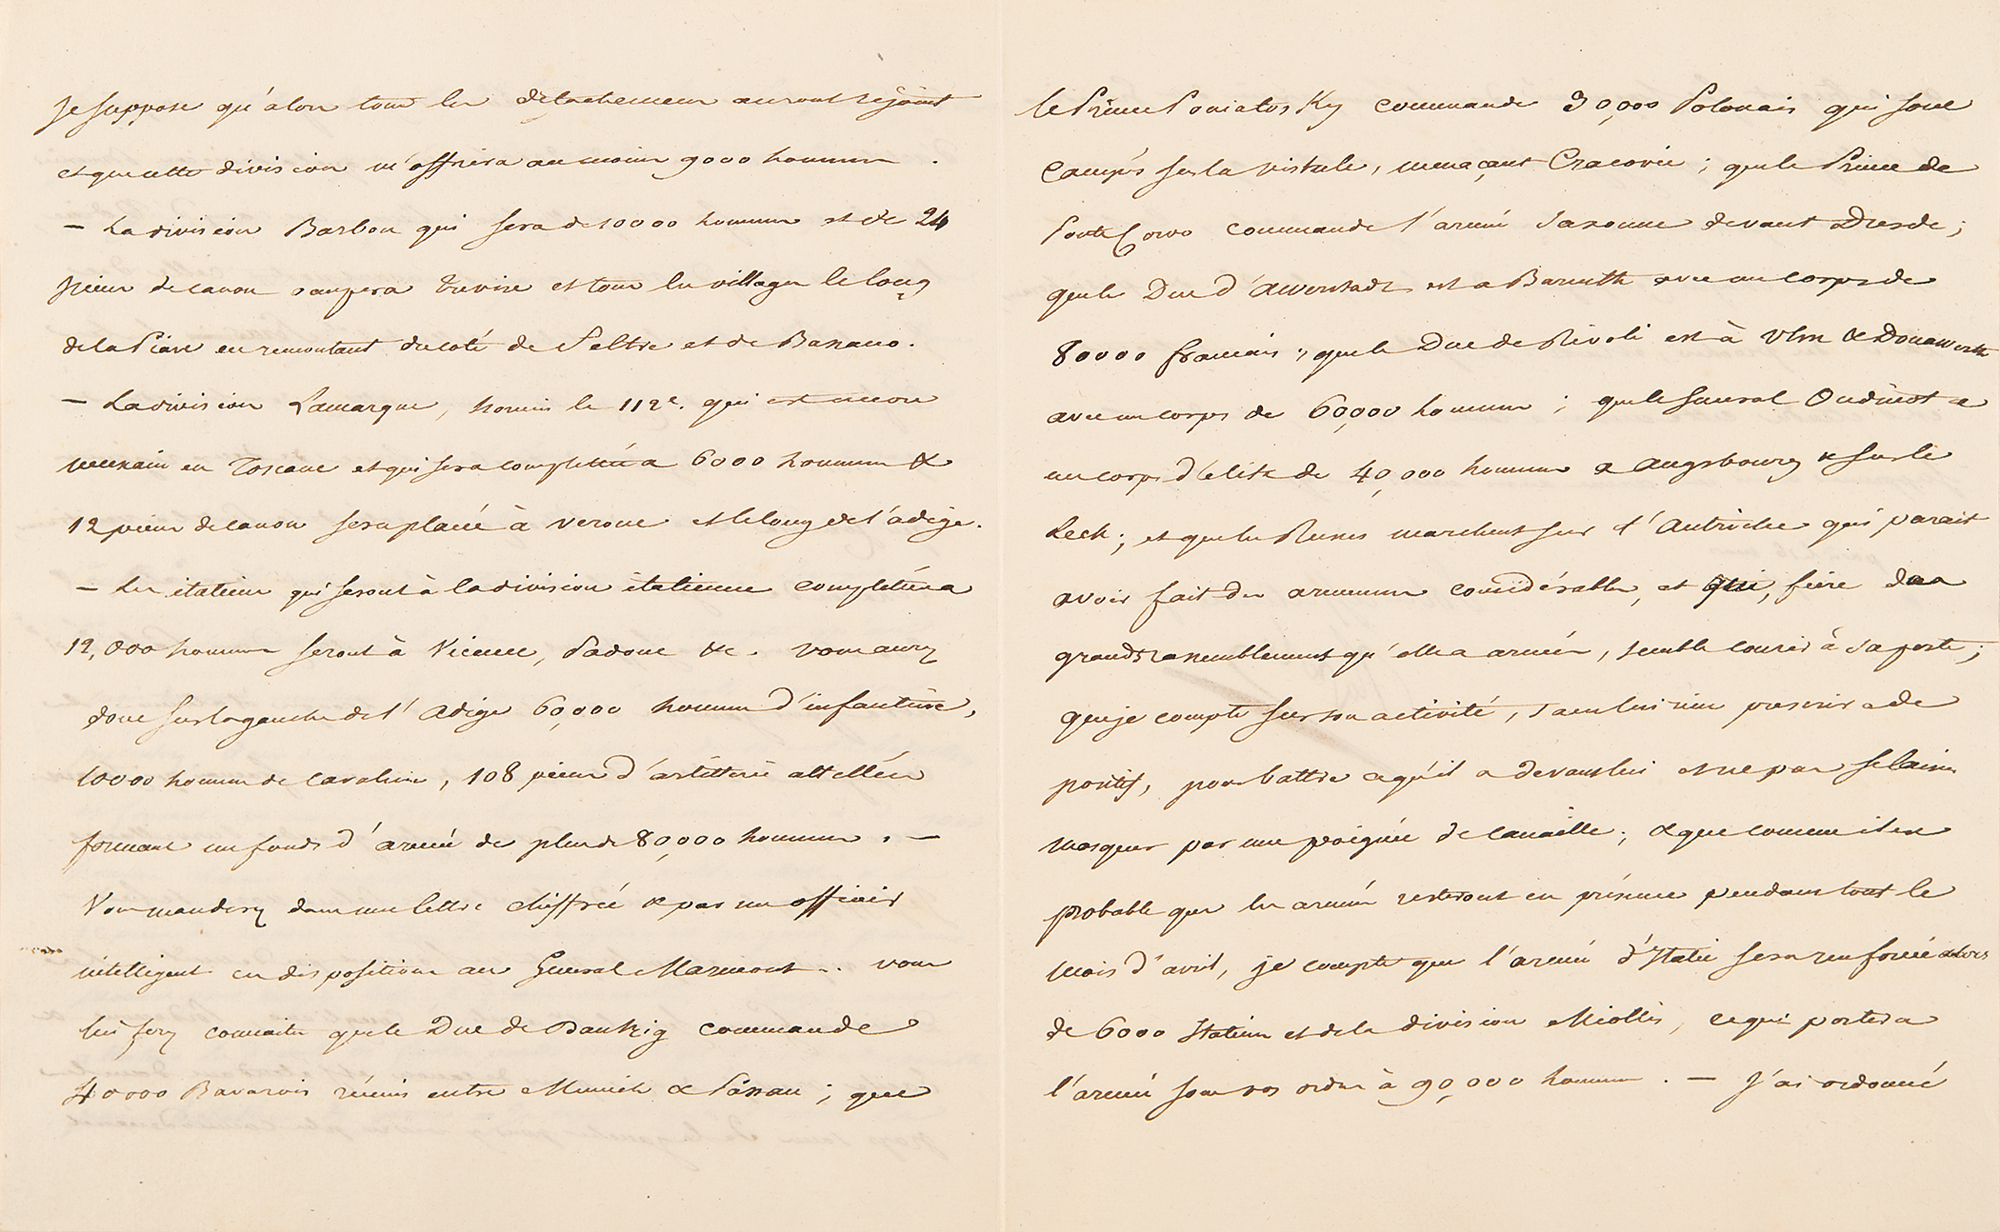 Je suppose qu'alors tous les détachemens auront rejoint
et que cette division m'offrira au moins 9000 hommes .
— La division Barbou qui sera de 10000 hommes et de 24
pièces de canon occupera Trévise et tous les villages le long
de la Piave en remontant du coté de Feltre et de Bassano.
— La division Lamarque, hormis le 112e. qui est encore
nécessaire en Toscane et qui sera complettée à 6000 hommes &
12 pièces de canon sera placée à Verone et le long de l'adige.
— Les italiens qui seront à la division italienne complétée à
12,000 hommes seront à Vicence, Padoue &c. Vous aurez
donc sur la gauche de l'Adige 60,000 hommes d'infanterie,
10000 hommes de cavalerie, 108 pièces d'artillerie attellées
formant un fonds d'armée de plus de 80,000 hommes. —
Vous manderez dans une lettre chiffrée & par un officier
intelligent ces dispositions au Général Marmont. Vous
lui ferez connaitre que le Duc de Dantzig commande
40000 Bavarois réunis entre Munich & Passau ; que
le Prince Poniatosky commande 30,000 Polonais qui sont
campés sur la vistule, menaçant Cracovie ; que le Prince de
Ponte Corvo commande l'armée Saxonne devant Dresde ;
que le Duc d'Awerstadt est a Bareuth avec un corps de
80000 francais ; que le Duc de Rivoli est à Ulm & Donawerth
avec un corps de 60,000 hommes ; que le Général Oudinot a
un corps d'élite de 40,000 hommes a Augsbourg & sur le
Leck ; et que les Russes marchent sur l'Autriche qui parait
avoir fait des armemens considérables, et qui, fière des
grands rassemblemens qu'elle a armés, semble courir à sa perte ;
que je compte sur son activité, sans lui rien prescrire de
positif, pour battre ce qu'il a devant lui et ne pas se laisser
masquer par une poignée de canaille ; & que comme il est
probable que les armées resteront en présence pendant tout le
mois d'avril, je compte que l'armée d'Italie sera renforcée alors
de 6000 Italiens et de la division Miollis, ce qui portera
l'armée sous vos ordres à 90,000 hommes . — J'ai ordonné